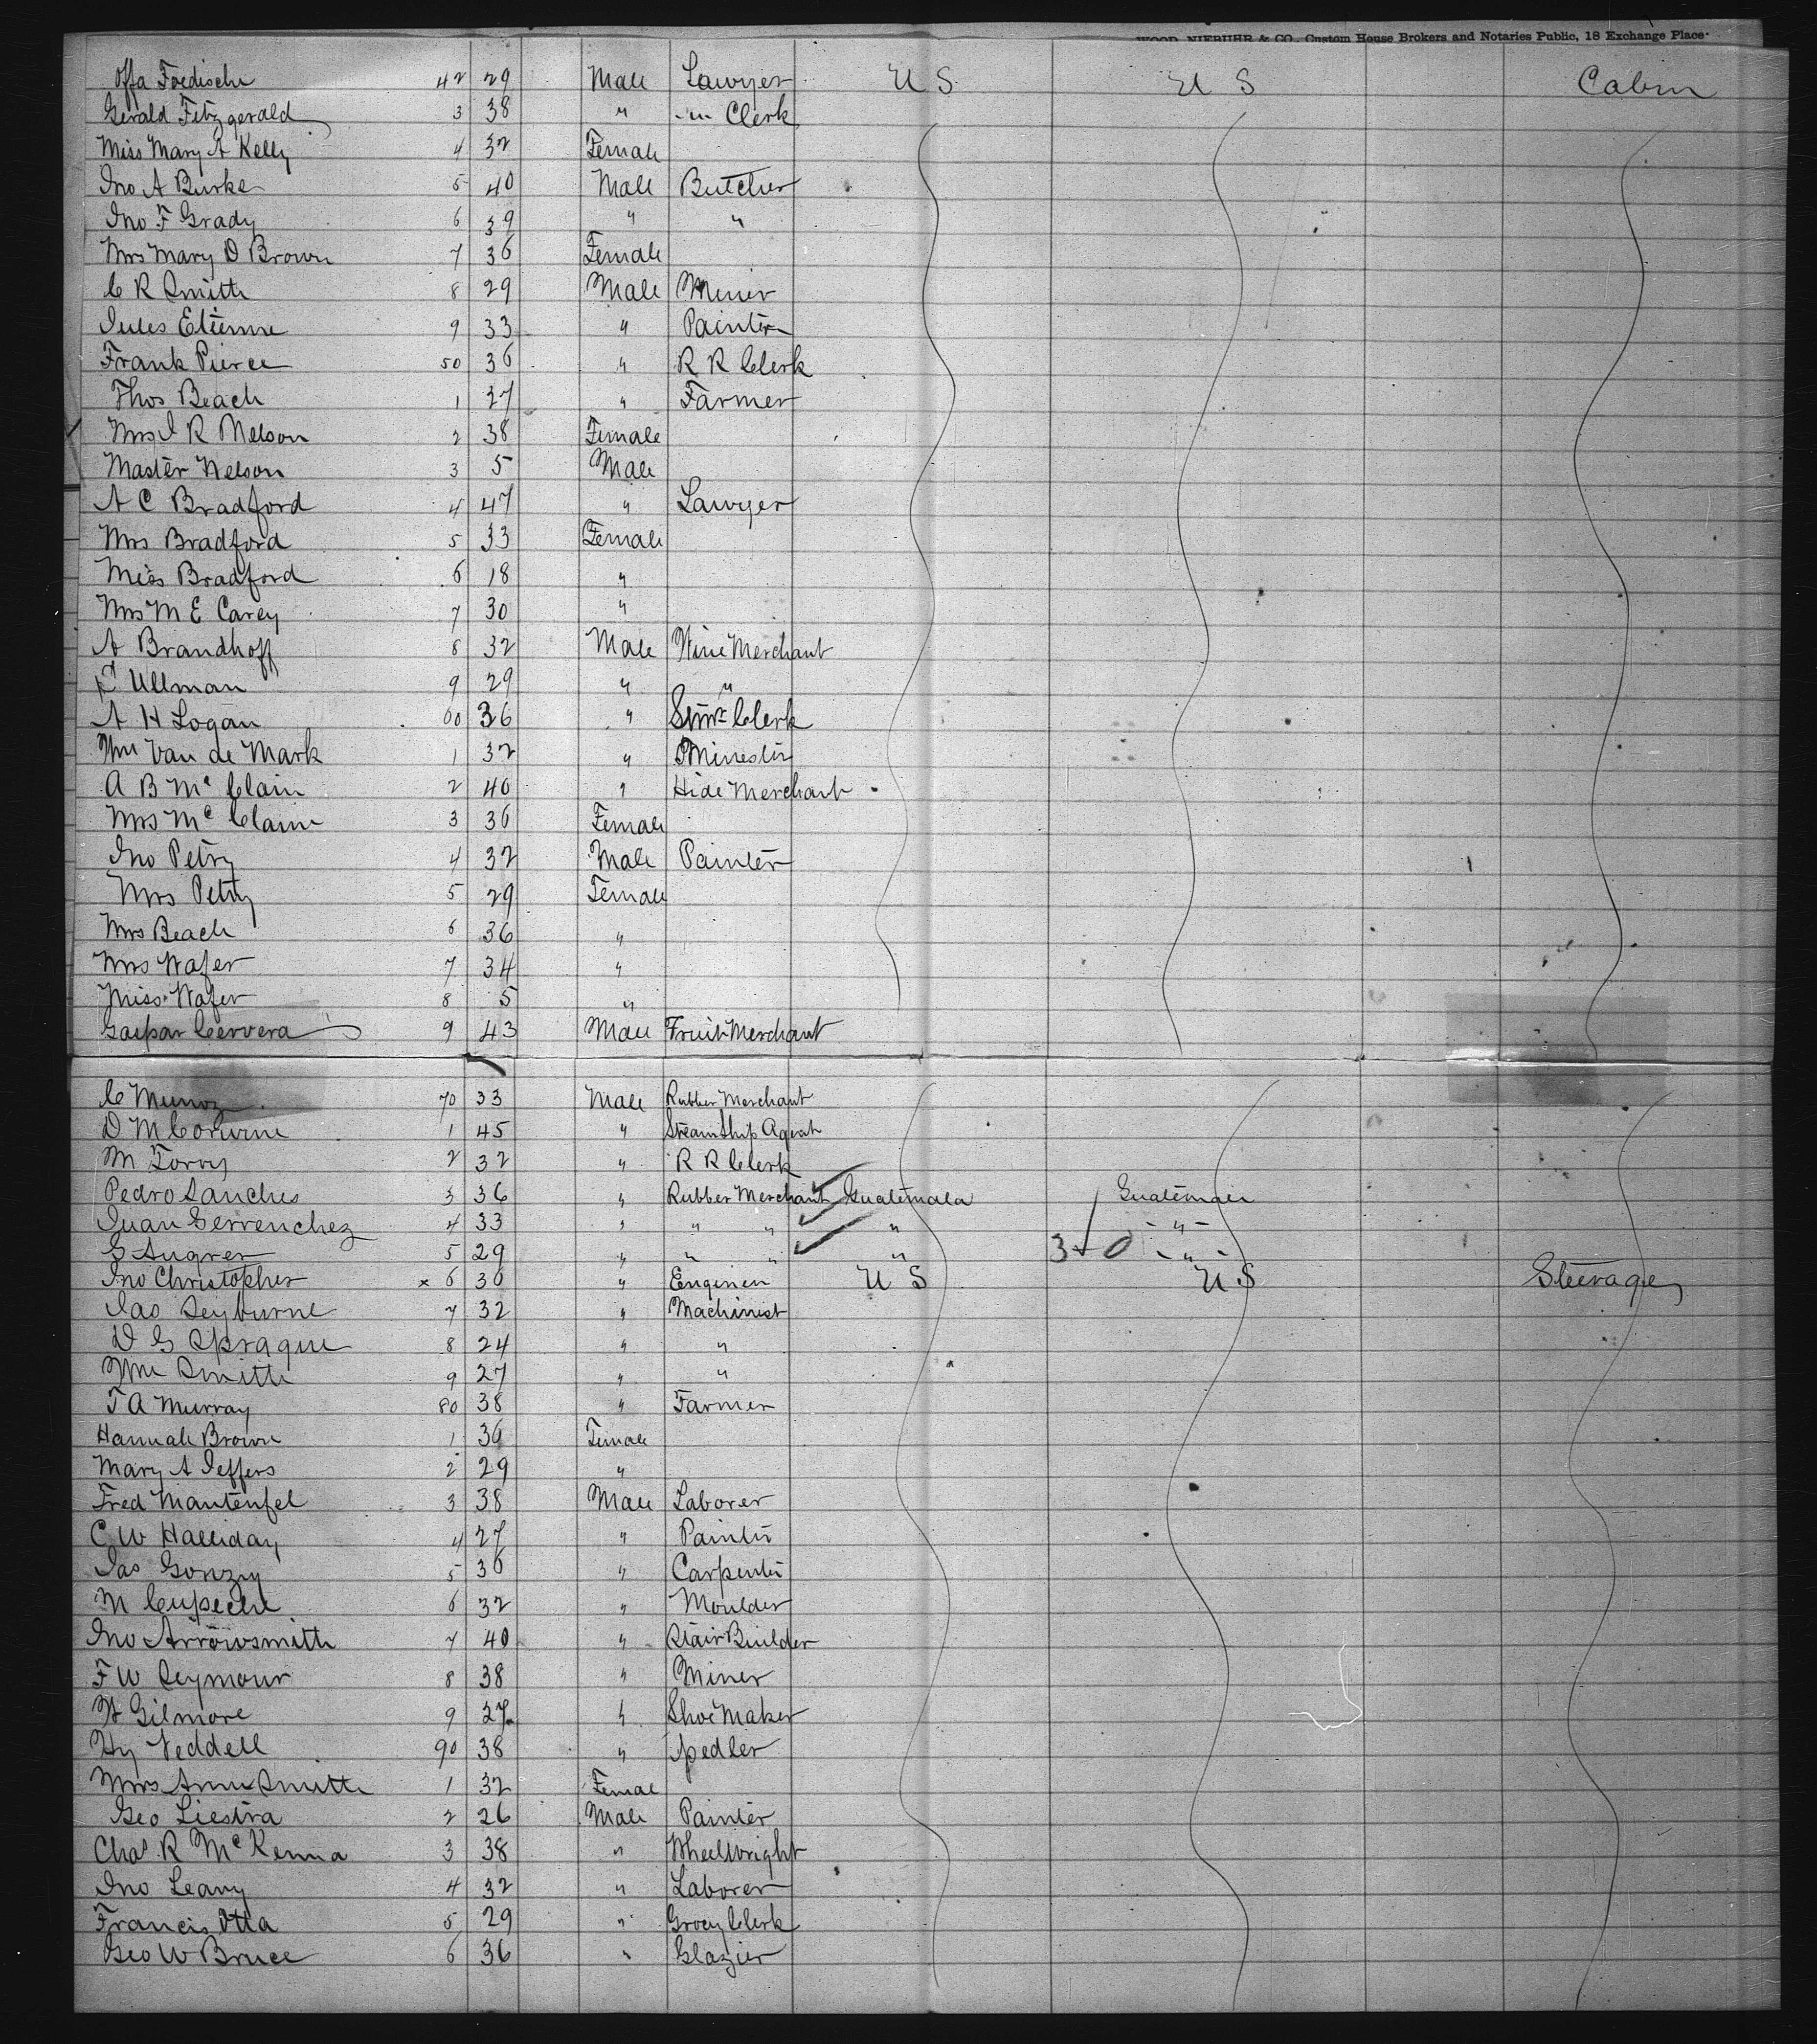 WOOD, NIEBUHR & CO., Custom House Brokers and Notaries Public, 18 Exchange Place.
Offa Foedische 42 29 Male Lawyer U S U S Cabin
Gerald Fitzgerald 3 38 " " Clerk
Miss Mary A Kelly 4 32 Female
Jno A Burke 5 40 Male Butcher
Jno F Grady 6 39 " "
Mrs Mary D Brown 7 36 Female
C R Smith 8 29 Male Miner
Jules Etienne 9 33 " Painter
Frank Pierce 50 36 " R R Clerk
Thos Beach 1 27 " Farmer
Mrs J R Nelson 2 38 Female
Master Nelson 3 5 Male
A C Bradford 4 47 " Lawyer
Mrs Bradford 5 33 Female
Miss Bradford 6 18 "
Mrs M E Carey 7 30 "
A Brandhoff 8 32 Male Wine Merchant
Ullman 9 29 " "
A H Logan 60 36 " Clerk
Wm Van de Mark 1 32 " Minester
A B Mc Clain 2 40 " Hide Merchant
Mrs Mc Clain 3 36 Female
Jno Petry 4 32 Male Painter
Mrs Petry 5 29 Female
Mrs Beach 6 36 "
Mrs Wafer 7 34 "
Miss Wafer 8 5 "
Gaspar Cervera 9 43 Male Fruit Merchant
C Munoz 70 33 Male Rubber Merchant
D M Corwine 1 45 " Steam Ship Agent
M Torry 2 32 " R R Clerk
Pedro Sanches 3 36 " Rubber Merchant Guatemala Guatemala
Juan Gerrenchez 4 33 " " " " "
G Augrer 5 29 " " " " 3 0 "
Jno Christopher x 6 36 " Engineer U S U S Steerage
Jas Seyburne 7 32 " Machinist
D G Sprague 8 24 " "
Wm Smith 9 27 " "
T A Murray 80 38 " Farmer
Hannah Brown 1 36 Female
Mary A Jeffers 2 29 "
Fred Mantenfel 3 38 Male Laborer
C W Halliday 4 27 " Painter
Jas Gonzry 5 36 " Carpenter
M Cupeche 6 32 " Moulder
Jno Arrowsmith 7 40 " Stair Builder
F W Seymour 8 38 " Miner
W Gilmore 9 27 " Shoe Maker
Hy Veddell 90 38 " Pedler
Mrs Ann Smith 1 32 Female
Geo Liestra 2 26 Male Painter
Chas R Mc Kenna 3 38 " Wheelwright
Jno Leany 4 32 " Laborer
Francis Otta 5 29 " Grocy Clerk
Geo W Bruce 6 36 " Glazier